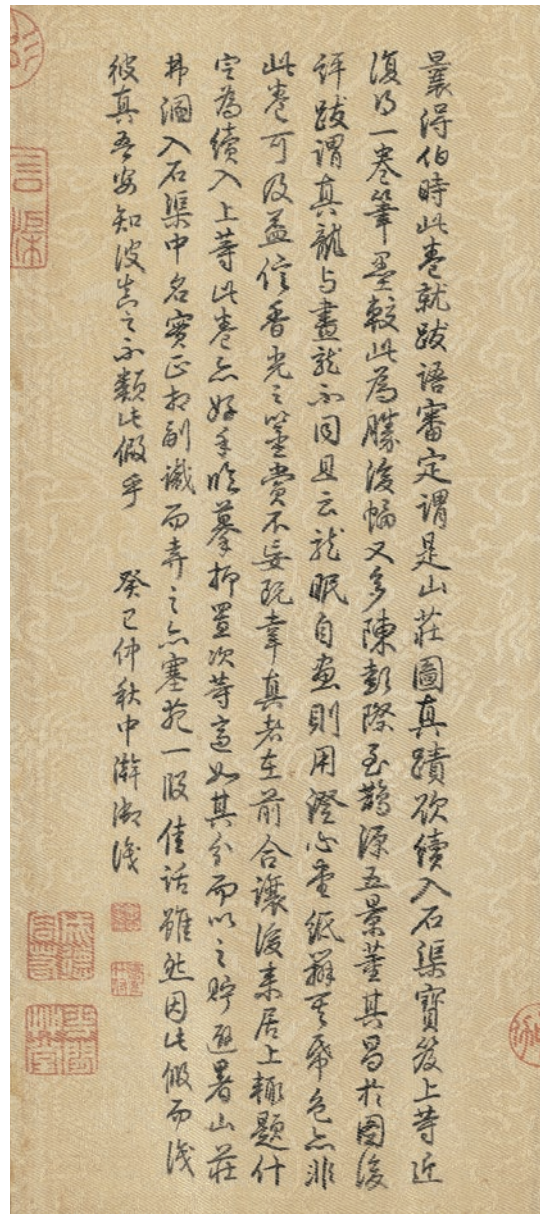 曩得伯時此卷就跋語審定謂是山莊圖真蹟欲續入石渠寶笈上等近
復得一卷筆墨較此為勝後幅又多陳彭際至鵲源五景董其昌於圖後
評跋謂真龍與畫龍不同且云龍眠自畫則用澄心堂紙辨其帋色亦非
此卷可及益信香光之鑒賞不妄玩韋真者在前合讓後來居上輒題什
定為續入上等此卷亦好手臨摹抑置次等適如其分而以之貯避暑山莊
弗溷入石渠中名實正相副識而弆之亦塞菀一段佳話雖然因此假而識
彼真吾安知彼真之不類此假乎 癸巳仲秋中澣御識